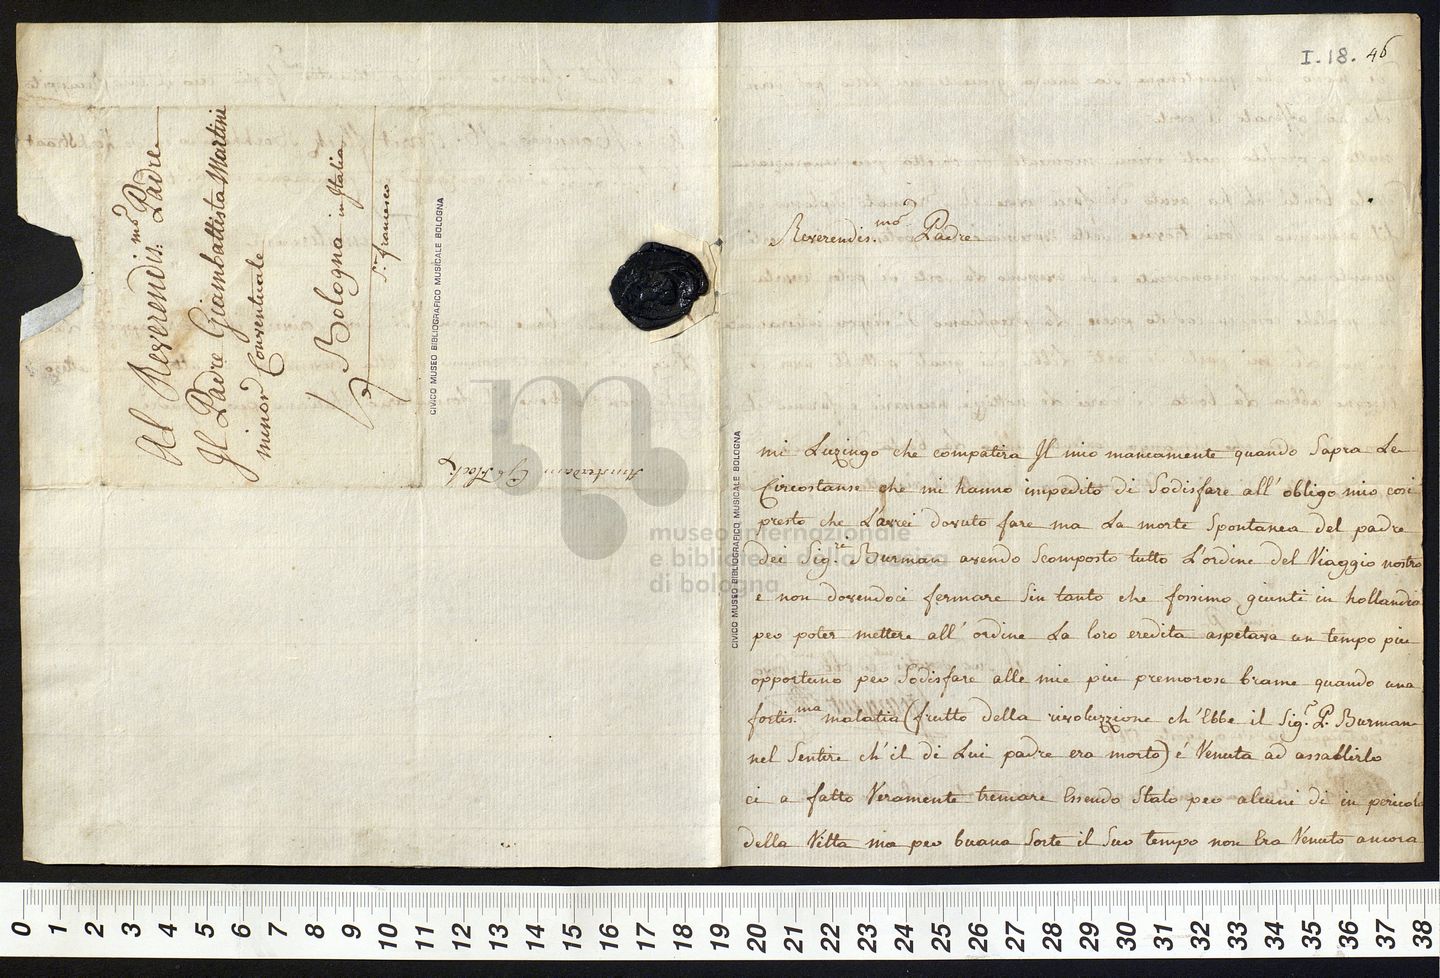 Al Reverendis:mo Padre
Il Padre Giambattista Martini
minor Conventuale
Bologna in Italia
Sn. francesco
CIVICO MUSEO BIBLIOGRAFICO MUSICALE BOLOGNA
Amsterdam
museo internazionale
e biblioteca della musica
di bologna
I. 18. 46
Reverendis:mo Padre
CIVICO MUSEO BIBLIOGRAFICO MUSICALE BOLOGNA
mi Luzingo che compatira Il mio mancamente quando Sapra Le
Circostanse che mi hanno impedito di Sodisfare all' obligo mio cosi
presto che L'avrei dovuto fare ma La morte Spontanea del padre
dei Sig.re Burman avendo Scomposto tutto L'ordine del Viaggio nostro
e non dovendoci fermare Sin tanto che fossimo giunti in hollandia
peo poter mettere all' ordine La loro eredita aspetava un tempo piu
opportuno peo Sodisfare alle mie piu premorose brame quando una
fortis:ma malatia (frutto della rivoluzzione ch'Ebbe il Sig.r P. Burman
nel Sentire ch'il di Lui padre era morto) é Venuta ad assallirlo
ci a fatto Veramente tremare Essendo Stato peo alcuni di in pericolo
della Vitta ma peo buona Sorte il Suo tempo non Era Venuto ancora
0 1 2 3 4 5 6 7 8 9 10 11 12 13 14 15 16 17 18 19 20 21 22 23 24 25 26 27 28 29 30 31 32 33 34 35 36 37 38